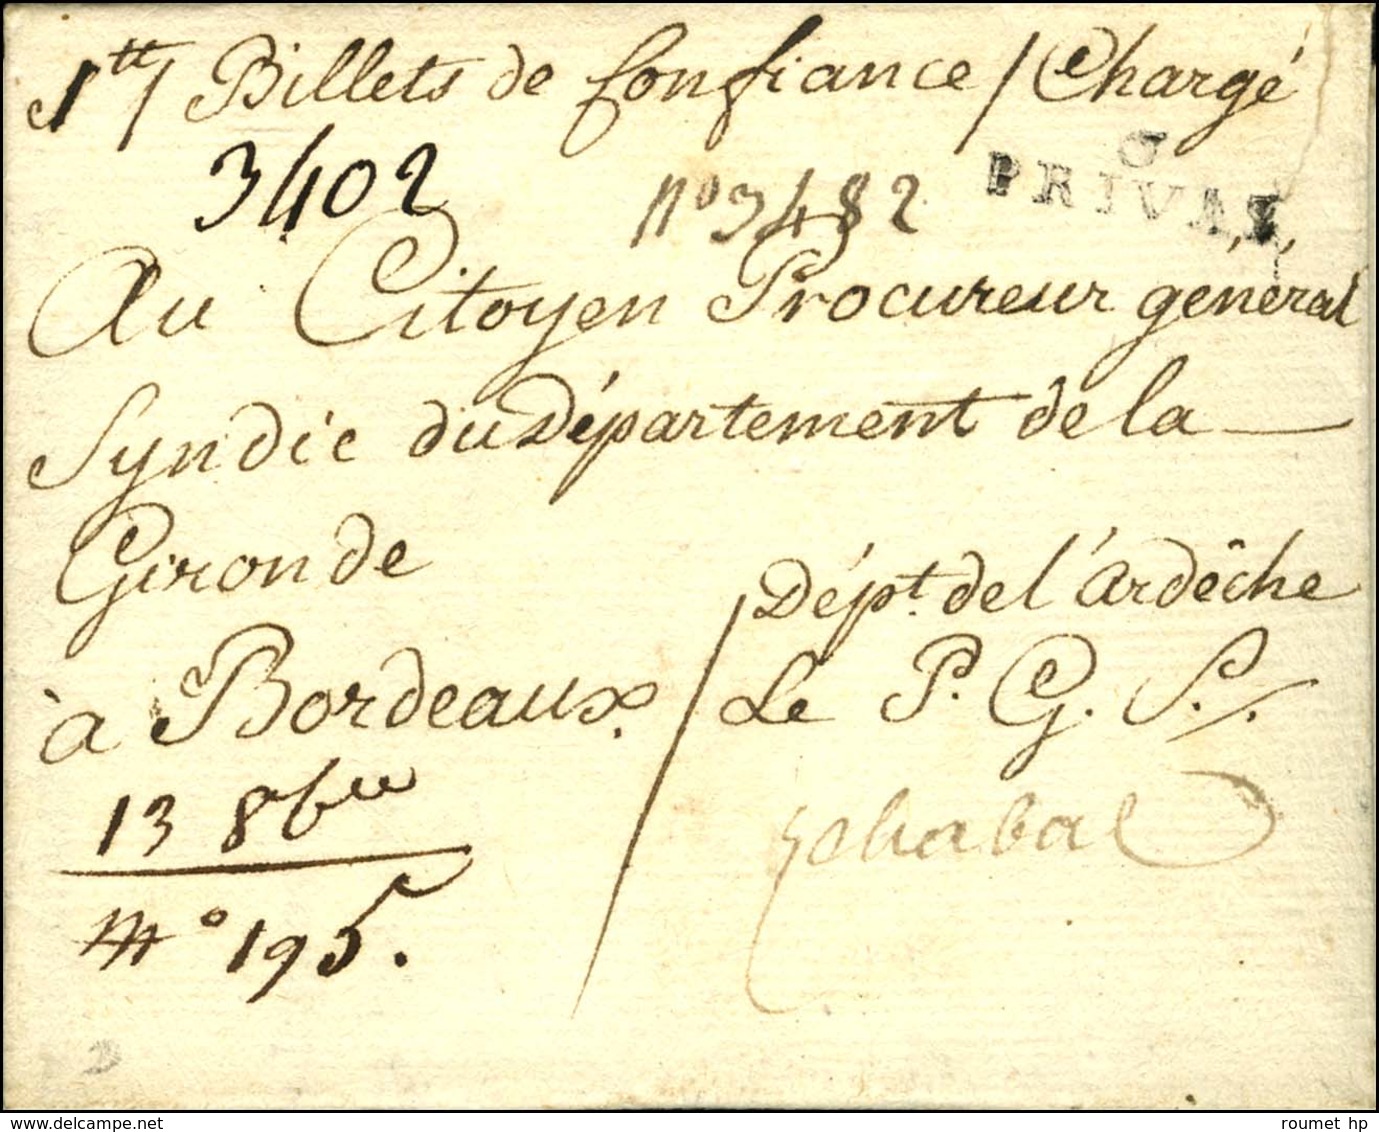 1tt / Billets de Confiance / Chargé
3402 n° 3482
6
PRIVAS
Au Citoyen Procureur général
Syndic du Département de la
Gironde
à Bordeaux.
13 8bre
n° 195.
Dépt. de l'ardêche
Le P. G. S.
chabal
delcampe.net
roumet hp